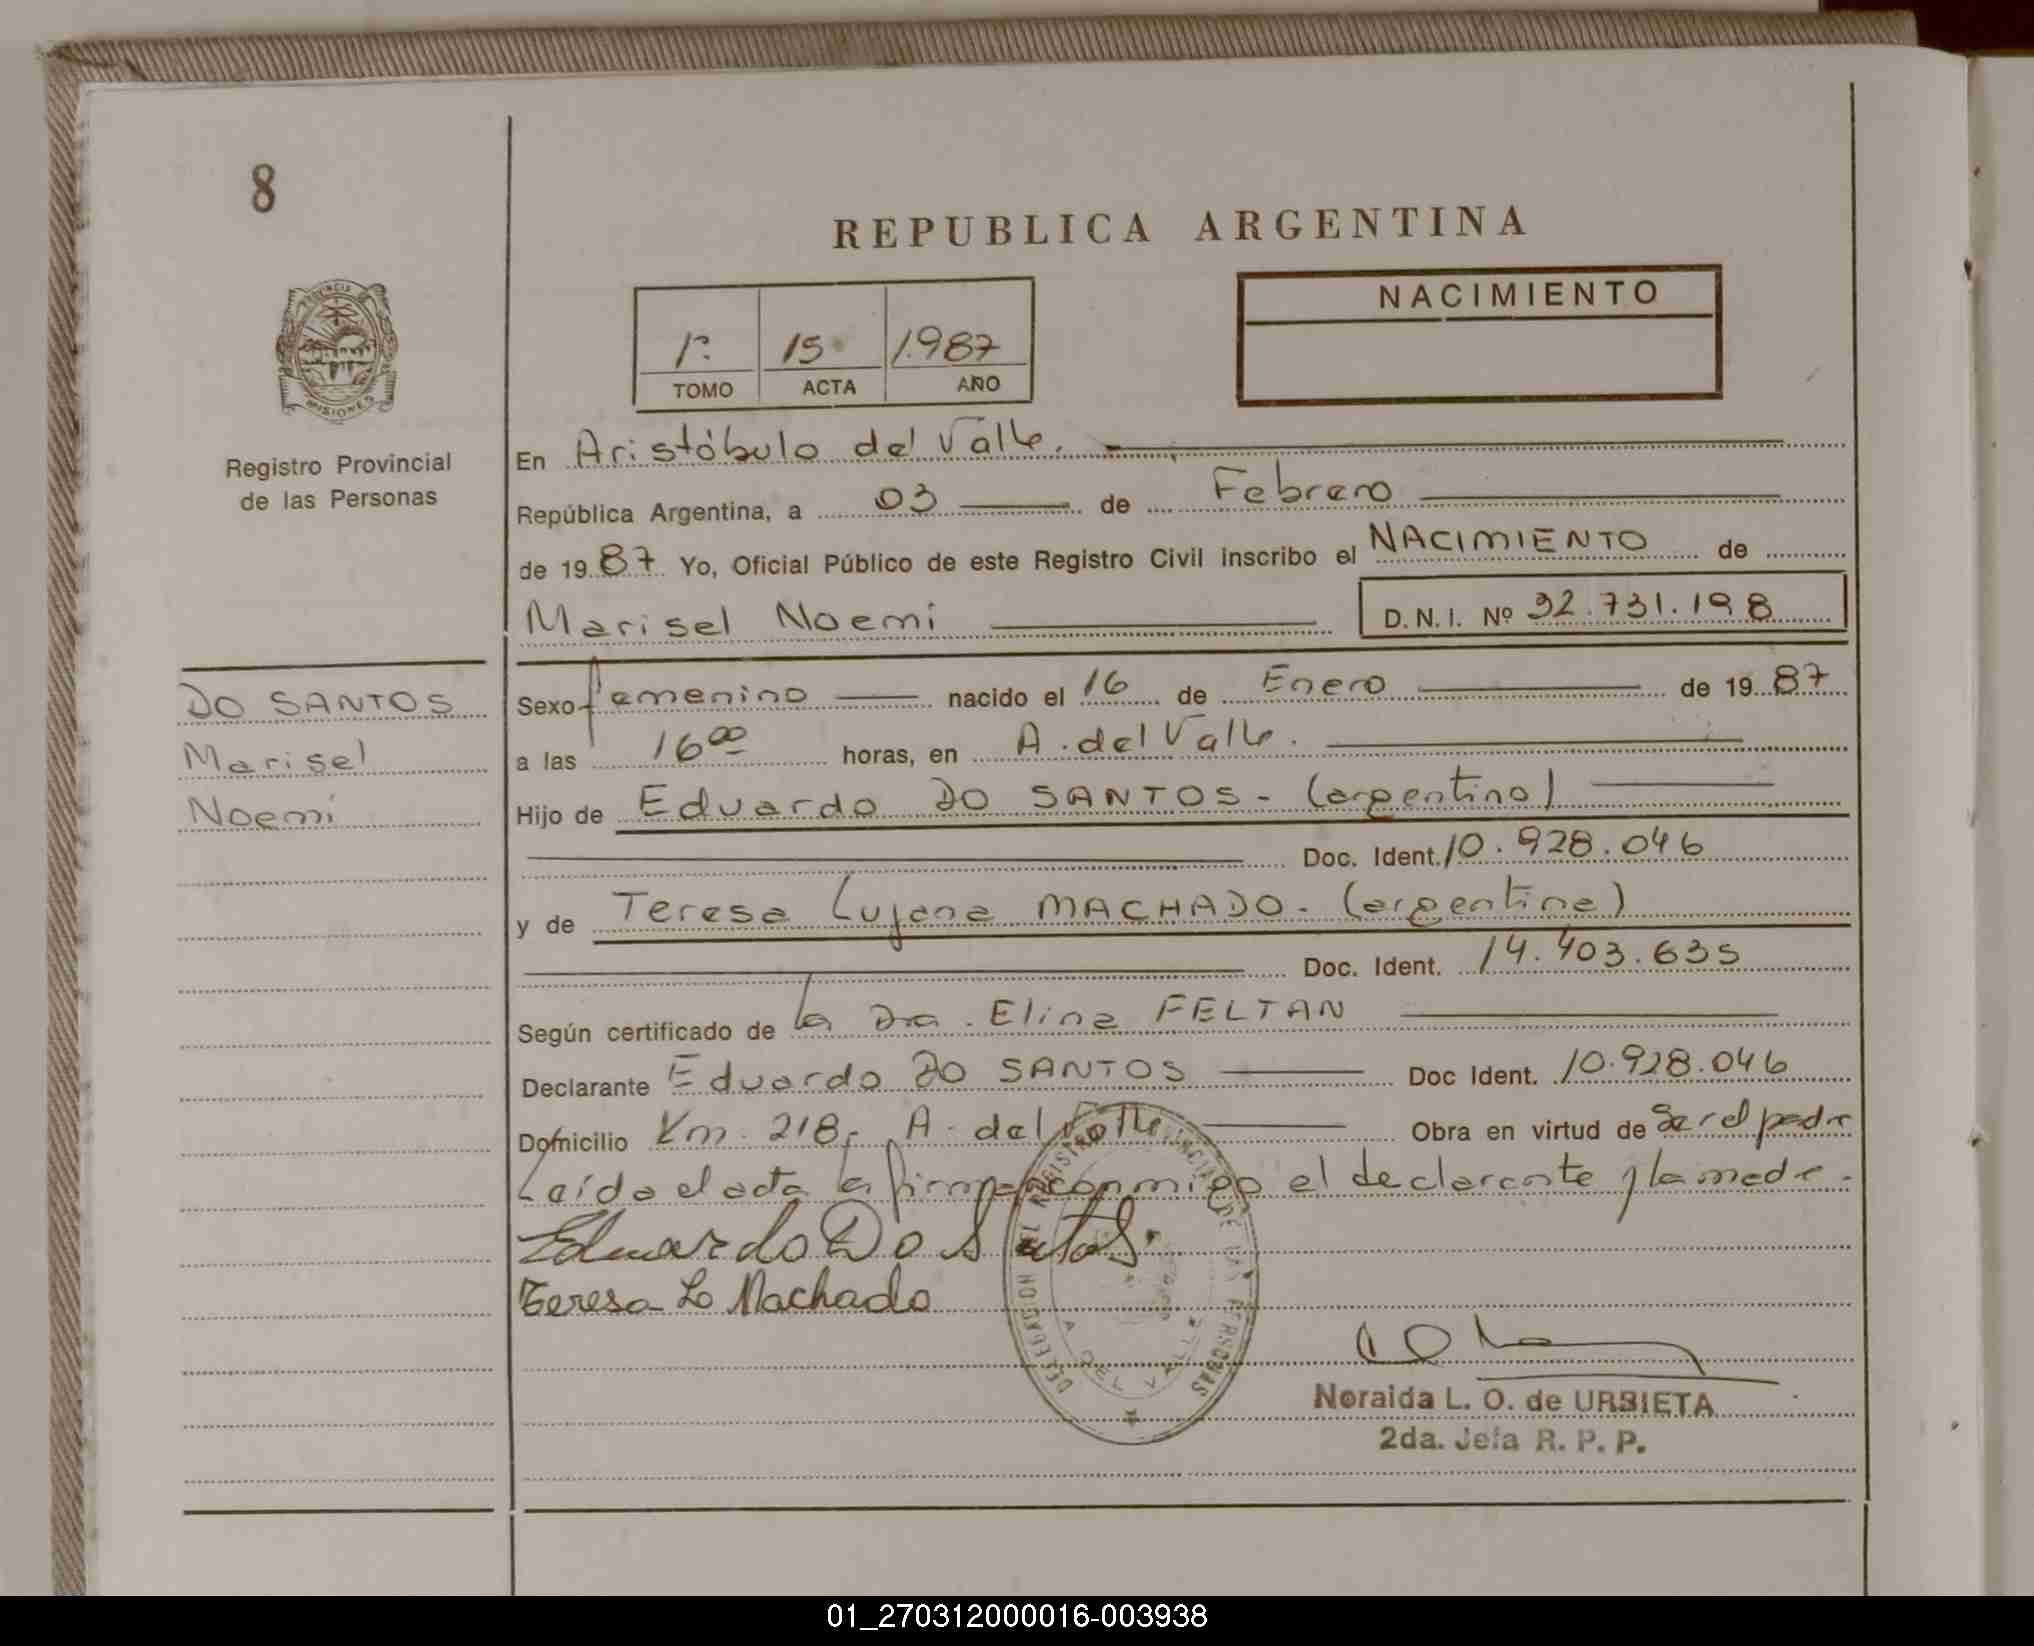 8
REPUBLICA ARGENTINA
PROVINCIA
MISIONES
Registro Provincial
de las Personas
1º. 15 1.987
TOMO ACTA AÑO
NACIMIENTO
En Aristóbulo del Valle.
República Argentina, a 03 de Febrero
de 19 87 Yo, Oficial Público de este Registro Civil inscribo el NACIMIENTO de
Marisel Noemi D.N.I. Nº 32.731.198
DO SANTOS
Marisel
Noemi
Sexo femenino nacido el 16 de Enero de 19 87
a las 16 00 horas, en A. del Valle.
Hijo de Eduardo DO SANTOS - (argentino)
Doc. Ident. 10.928.046
y de Teresa Lujana MACHADO - (argentina)
Doc. Ident. 14.403.635
Según certificado de la Dra. Elina FELTAN
Declarante Eduardo DO SANTOS Doc Ident. 10.928.046
Domicilio Km. 218, A. del Valle Obra en virtud de Ser el padre
Leída el acta la firman conmigo el declarante y la madre.
Eduardo Do Santos.
Teresa L Machado
DELEGACION DEL REGISTRO PROVINCIAL DE LAS PERSONAS
A. DEL VALLE
Noraida L. O. de URBIETA
2da. Jefa R. P. P.
01_270312000016-003938